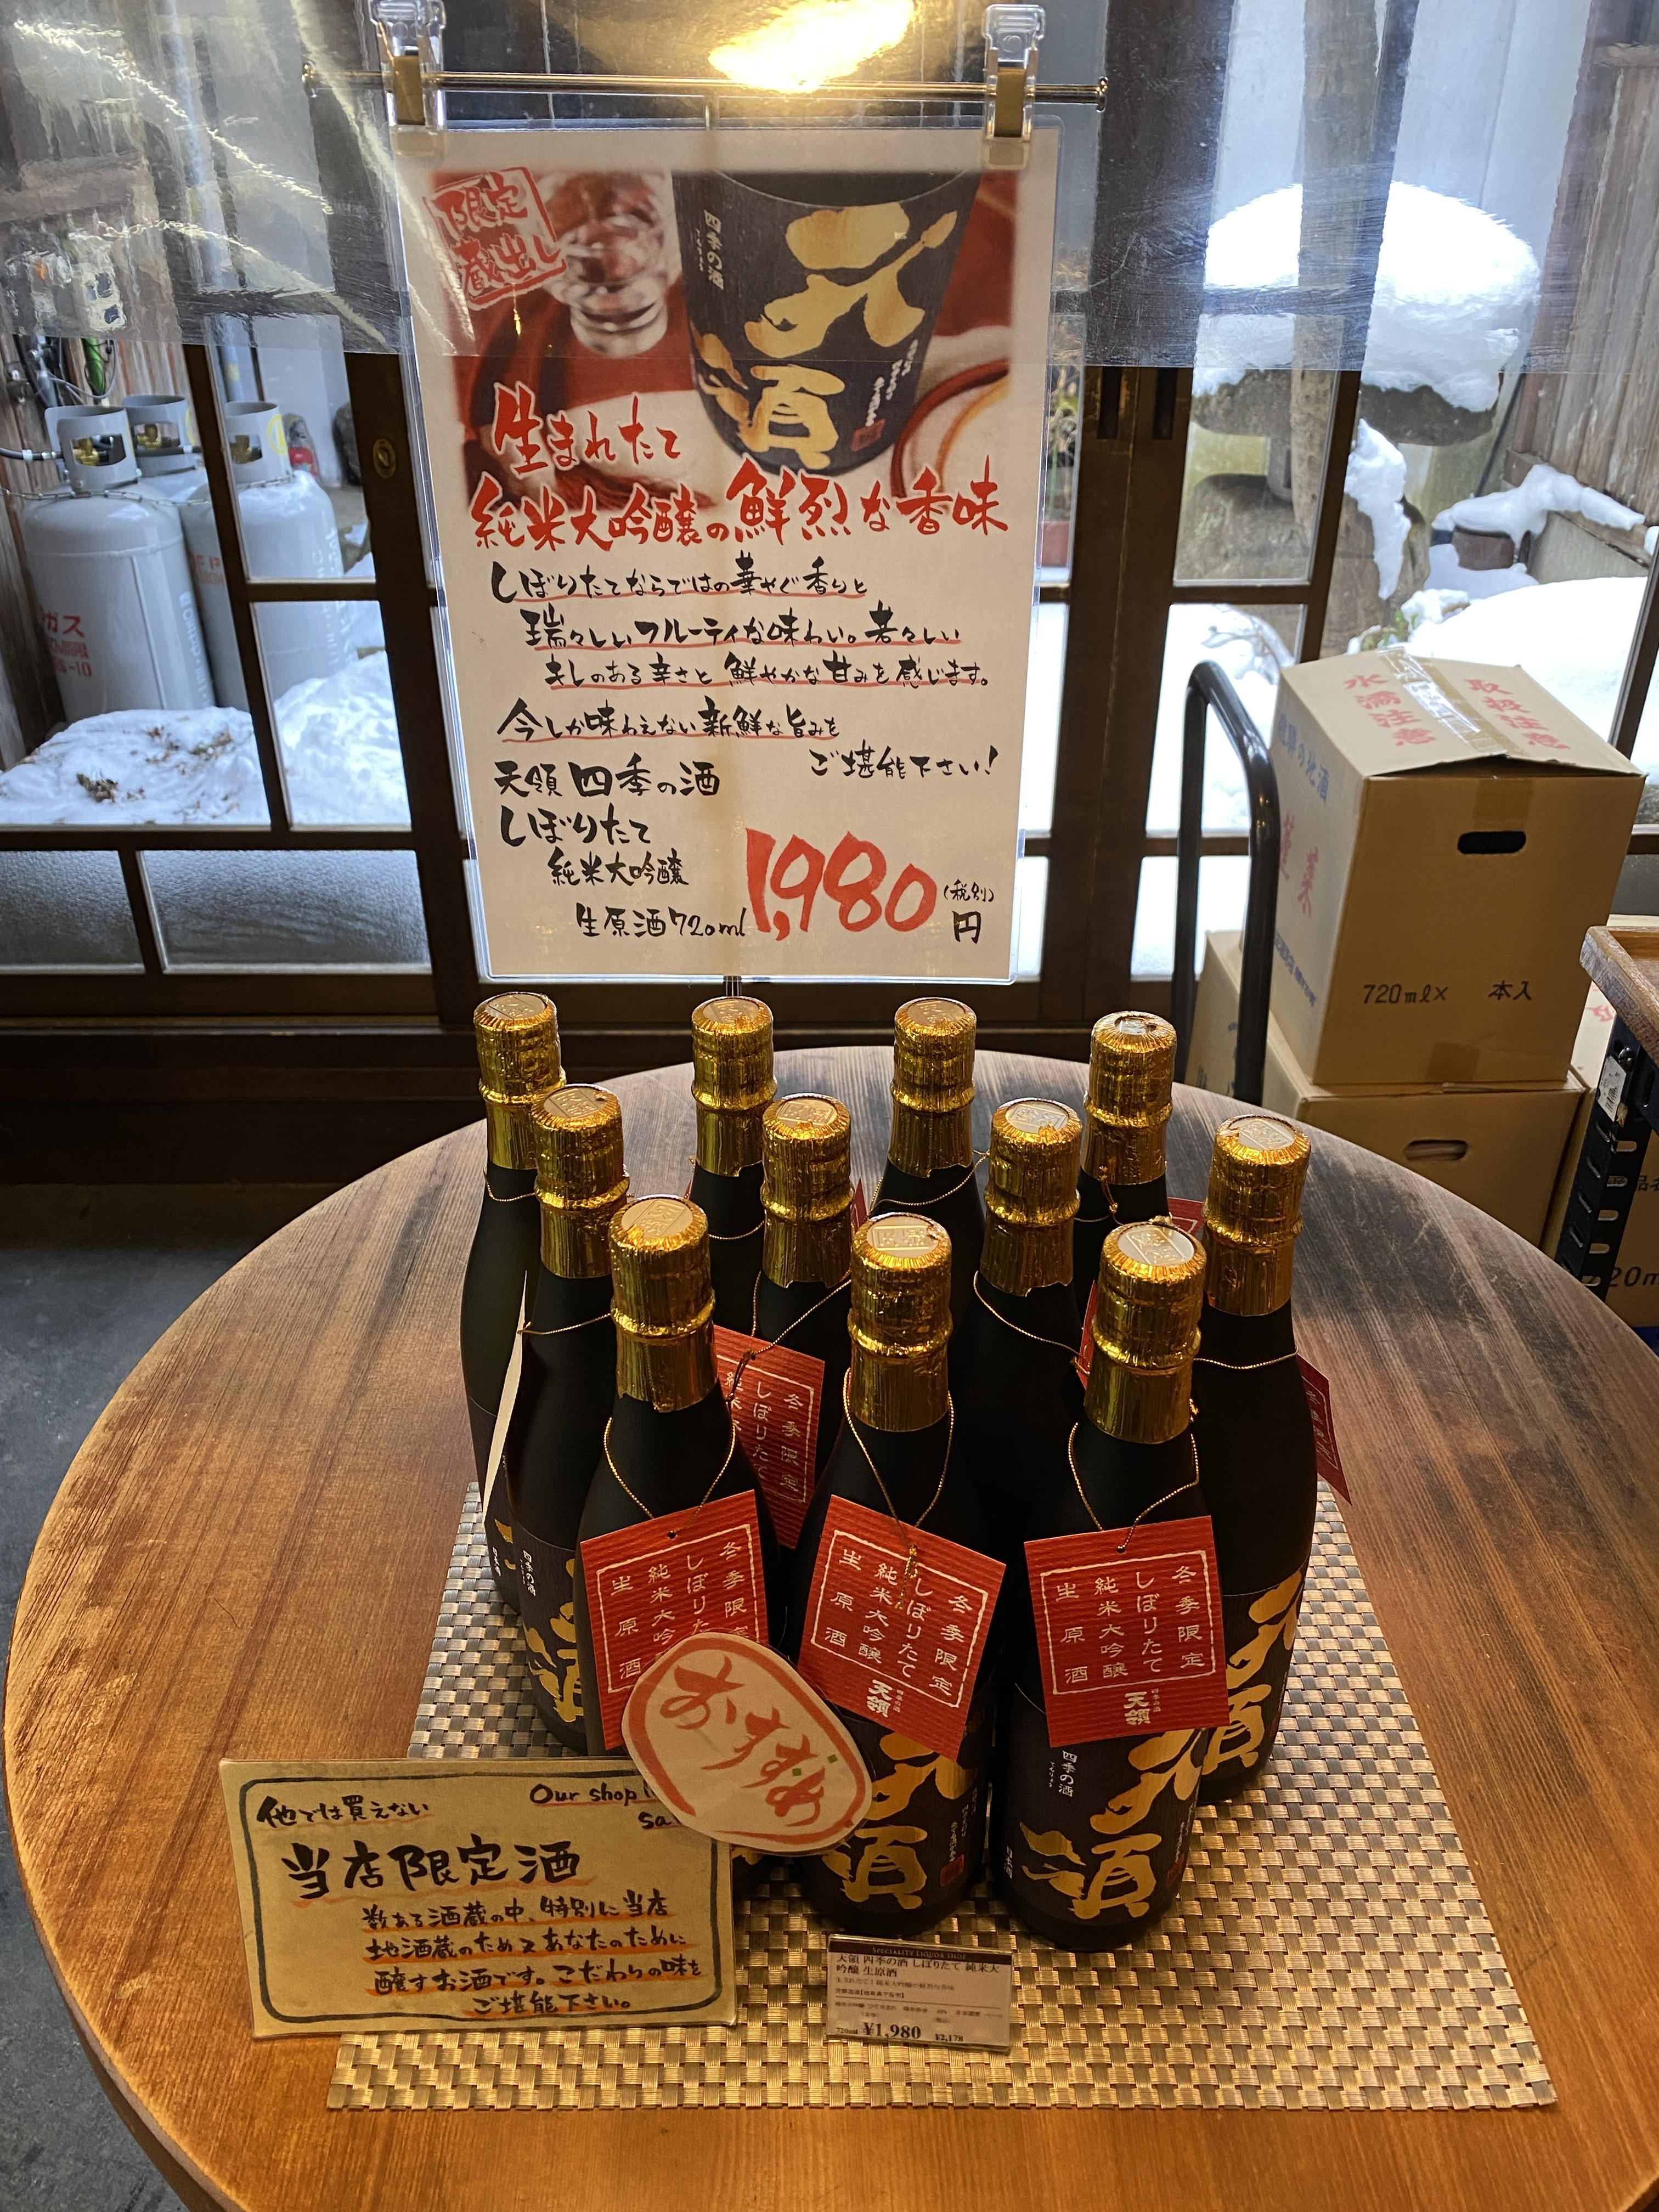 限定
蔵出し
四季の酒
天領
生まれたて
純米大吟醸の鮮烈な香味
しぼりたてならではの華やぐ香りと
瑞々しいフルーティな味わい。若々しい
キレのある辛さと鮮やかな甘みを感じます。
今しか味わえない新鮮な旨みを
ご堪能下さい!
天領 四季の酒
しぼりたて
純米大吟醸
生原酒720ml
1,980円
(税別)
ガス
水濡注意
取扱注意
蓬莱
720ml× 本入
冬季限定
しぼりたて
純米
冬季限定
しぼりたて
純米大吟醸
生原酒
冬季限定
しぼりたて
純米大吟醸
生原酒
四季の酒
天領
冬季限定
しぼりたて
純米大吟醸
生原酒
四季の酒
天領
四季の酒
天領
おすすめ
他では買えない
Our shop
当店限定酒
数ある酒蔵の中、特別に当店
地酒蔵のため又あなたのために
醸すお酒です。こだわりの味を
ご堪能下さい。
SPECIALITY LIQUOR SHOP
天領 四季の酒 しぼりたて 純米大
吟醸 生原酒
720ml ¥1,980 ¥2,178